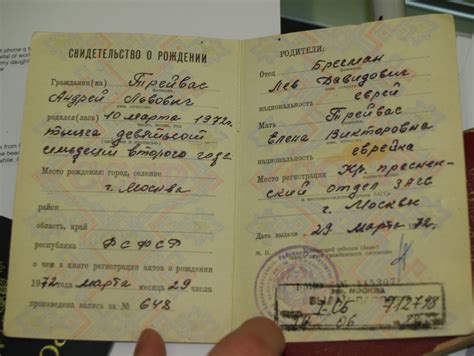 СВИДЕТЕЛЬСТВО О РОЖДЕНИИ
Гражданин(ка) Трейвас
фамилия
Андрей Львович
имя, отчество
родился(лась) 10 марта 1972г.
тысяча девятьсот
семьдесят второго года
Место рождения: город, селение
г. Москва
район
область, край
республика РСФСР
о чем в книге регистрации актов о рождении
1972 года марта месяца 29 числа
произведена запись за № 648
РОДИТЕЛИ:
Отец Бресман
фамилия
Лев Давидович
имя, отчество
еврей
национальность
Мать Трейвас
фамилия
Елена Викторовна
имя, отчество
национальность еврейка
Место регистрации Кр. преснен-
ский отдел ЗАГС
г. Москвы
Дата выдачи 29 марта 1972.
М. П.
гор. МОСКВА
712798
06